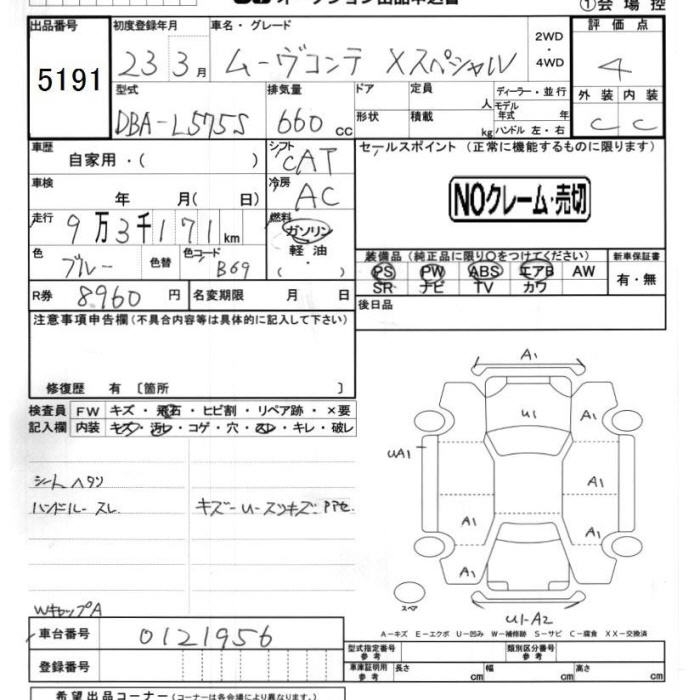 オークション出品申込書
①会場控
出品番号 初度登録年月 車名・グレード 評価点
5191 23 3月 ムーヴコンテ Xスペシャル 2WD・4WD 4
型式 排気量 ドア 定員 人 ディーラー・並行 外装 内装
DBA-L575S 660 cc 形状 積載 kg モデル年式 年 ハンドル 左・右 C C
車歴 自家用・( ) シフト CAT セールスポイント (正常に機能するものに限ります)
車検 年 月( 日) 冷房 AC NOクレーム・売切
走行 9万3千171km 燃料 ガソリン 軽油 ( ・ )
色 ブルー 色替 色コード B69 装備品 (純正品に限り○をつけてください) 新車保証書
PS PW ABS エアB AW 有・無
SR ナビ TV カワ
R券 8960 円 名変期限 月 日 後日品
注意事項申告欄 (不具合内容等は具体的に記入して下さい)
修復歴 有 [箇所 ]
検査員 FW キズ・飛石・ヒビ割・リペア跡・×要
記入欄 内装 キズ・汚レ・コゲ・穴・スレ・キレ・破レ
A1
U1 A1
UA1
A1
A1 A1
A1
シートヘタリ
ハンドルースレ キズーU-スリキズ・
WキャップA スペア U1-A2
A-キズ E-エクボ U-凹み W-補修跡 S-サビ C-腐食 XX-交換済
車台番号 0121956
型式指定番号 参考 類別区分番号 参考
登録番号 車庫証明用 参考 長さ cm 幅 cm 高さ cm
希望出品コーナー (コーナーは各会場により異なります。)